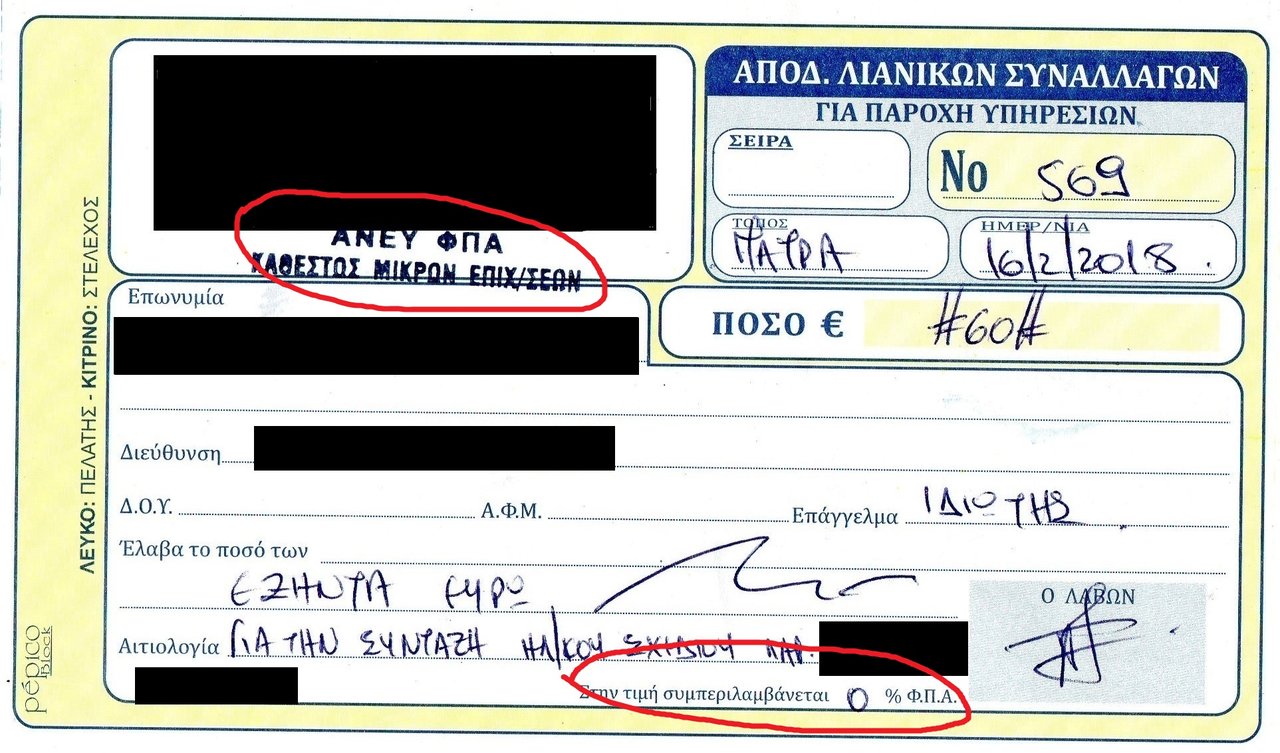 ΛΕΥΚΟ: ΠΕΛΑΤΗΣ - ΚΙΤΡΙΝΟ: ΣΤΕΛΕΧΟΣ
pépico
Block
ΑΝΕΥ ΦΠΑ
ΚΑΘΕΣΤΩΣ ΜΙΚΡΩΝ ΕΠΙΧ/ΣΕΩΝ
ΑΠΟΔ. ΛΙΑΝΙΚΩΝ ΣΥΝΑΛΛΑΓΩΝ
ΓΙΑ ΠΑΡΟΧΗ ΥΠΗΡΕΣΙΩΝ
ΣΕΙΡΑ
Νο 569
ΤΟΠΟΣ
ΠΑΤΡΑ
ΗΜΕΡ/ΝΙΑ
16/2/2018.
Επωνυμία
ΠΟΣΟ € #60#
Διεύθυνση
Δ.Ο.Υ. Α.Φ.Μ. Επάγγελμα ΙΔΙΩΤΗΣ
Έλαβα το ποσό των
ΕΞΗΝΤΑ ΕΥΡΩ
Ο ΛΑΒΩΝ
Αιτιολογία ΓΙΑ ΤΗΝ ΣΥΝΤΑΞΗ ΗΛ/ΚΟΥ ΣΧΕΔΙΟΥ
Στην τιμή συμπεριλαμβάνεται 0 % Φ.Π.Α.